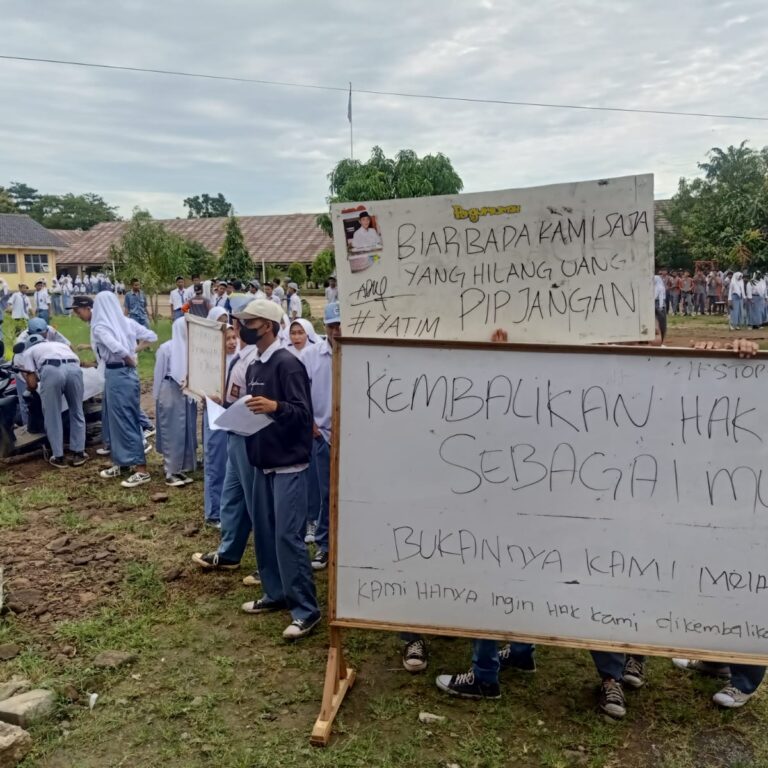 BIAR BADA KAMI SAJA
YANG HILANG UANG
PIP JANGAN
#YATIM
#STOP
KEMBALIKAN HAK
SEBAGAI MU
BUKANNYA KAMI MELA
KAMI HANYA INGIN HAK KAMI dikembalika